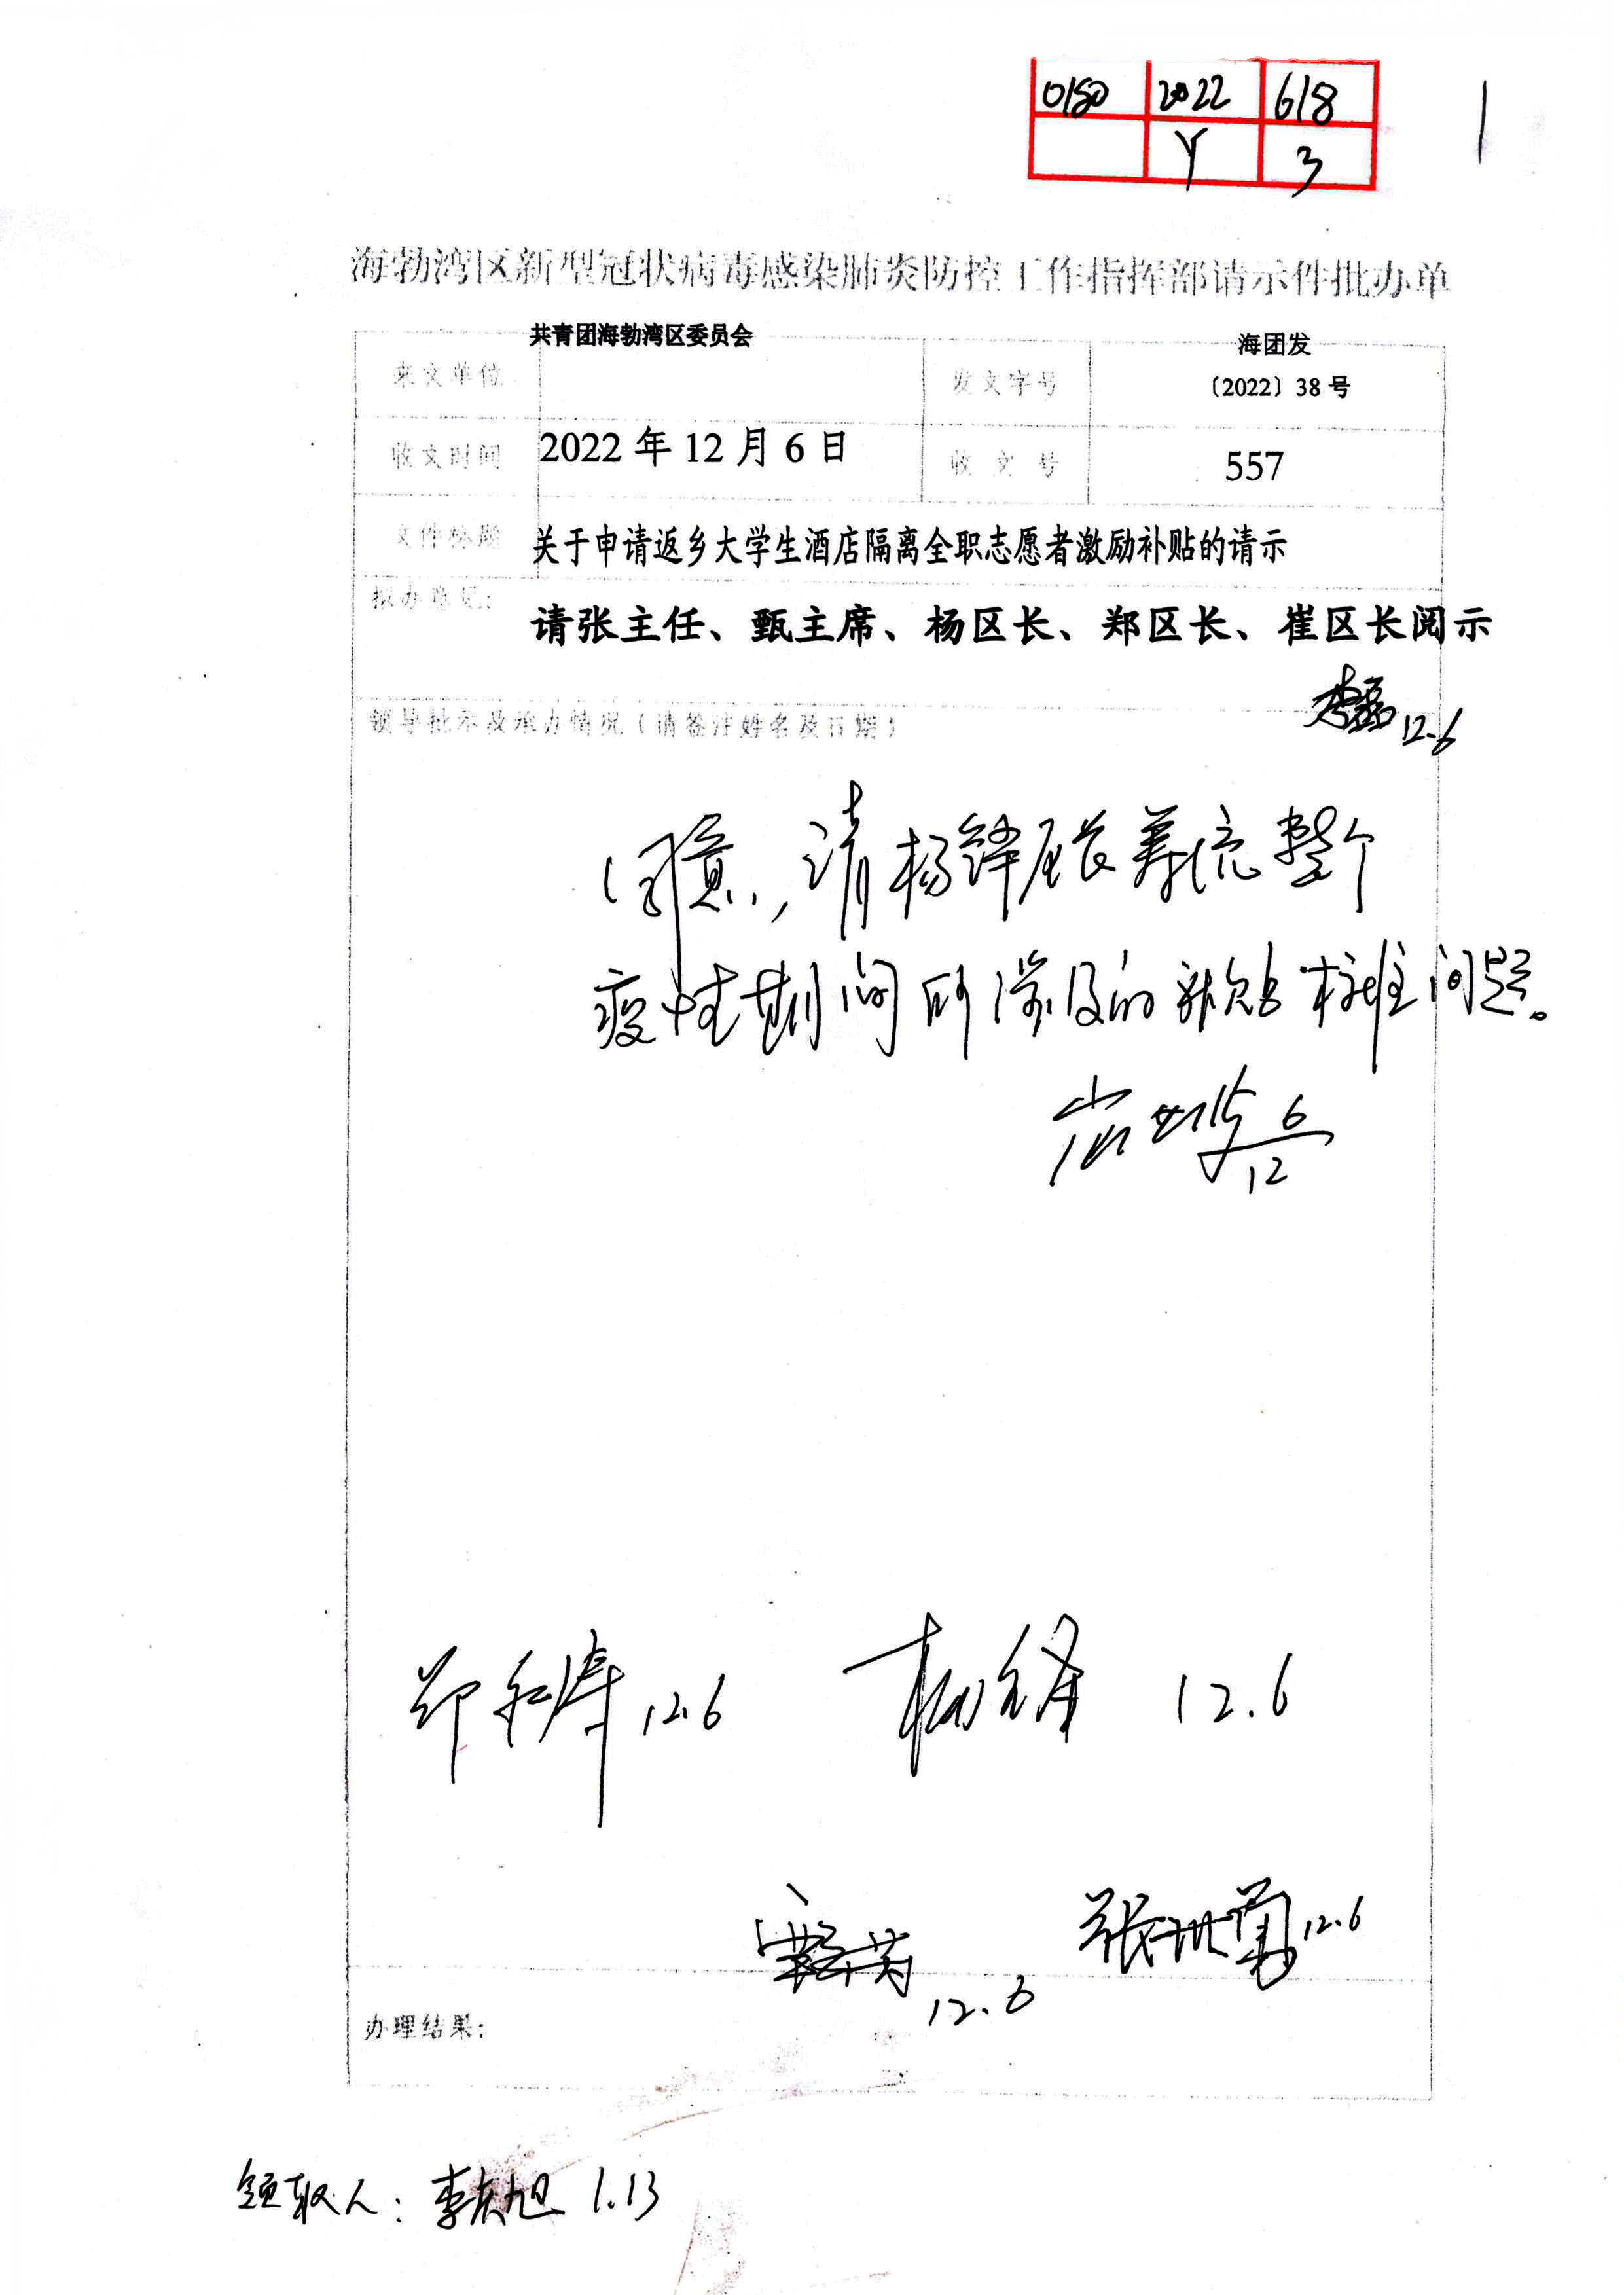 0150 2022 618
Y 3
1
海勃湾区新型冠状病毒感染肺炎防控工作指挥部请示件批办单
来文单位 共青团海勃湾区委员会 发文字号 海团发
〔2022〕38 号
收文时间 2022 年 12 月 6 日 收文号 557
文件标题 关于申请返乡大学生酒店隔离全职志愿者激励补贴的请示
拟办意见:
请张主任、甄主席、杨区长、郑区长、崔区长阅示
李磊 12.6
领导批示及承办情况（请签注姓名及日期）
同意，请杨锋区长考虑整个
疫情期间所涉及的补贴标准问题。
6/12
郑 12.6 杨锋 12.6
12.6 张 勇 12.6
办理结果:
领取人：李 旭 1.13